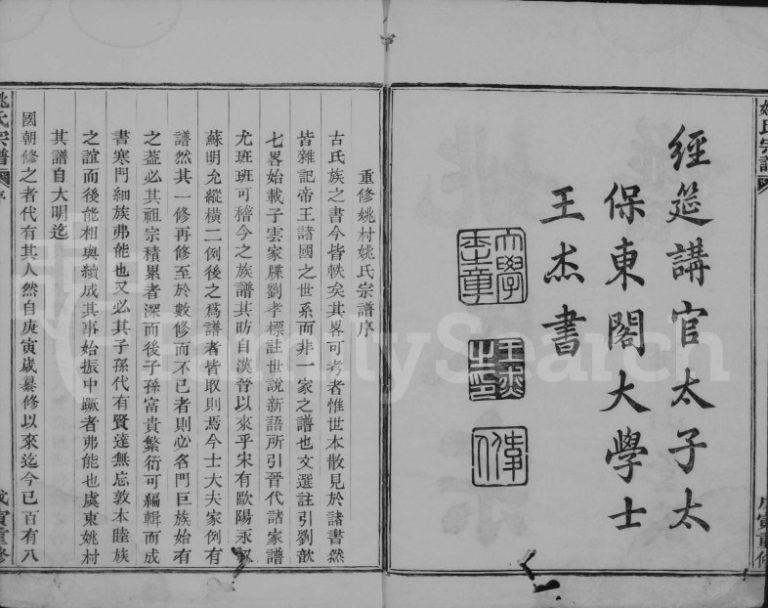 姚氏宗譜
庚寅重修
經筵講官太子太
保東閣大學士
王杰書
大學
士章
王杰
之印
重修姚村姚氏宗譜序
古氏族之書今皆軼矣其畧可考者惟世本散見於諸書然
皆雜記帝王諸國之世系而非一家之譜也文選註引劉歆
七畧始載子雲家牒劉孝標註世說新語所引晉代諸家譜
尤班班可稽今之族譜其昉自漢晉以來乎宋有歐陽永叔
蘇明允縱橫二例後之為譜者皆取則焉今士大夫家例有
譜然其一修再修至於數修而不已者則必名門巨族始有
之葢必其祖宗積累者深而後子孫富貴繁衍可編輯而成
書寒門細族弗能也又必其子孫代有賢達無忘敦本睦族
之誼而後能相與續成其事始振中蹶者弗能也虞東姚村
其譜自大明迄
國朝修之者代有其人然自庚寅歲纂修以來迄今已百有八
姚氏宗譜
序
戊寅重修